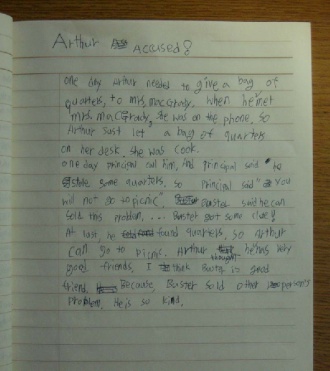 Arthur Acused?
One day Arthur needed to give a bag of
quarters, to mrs. macGrady. When he met
mrs. MacGrady, she was on the phone, so
Arthur Sust let a bag of quarters
on her desk. she was Cook.
one day principal call him, and principal said "
some quarters, so principal said " You
will not go to picnic", Buster said he can
Sold this problem, ... Buster got some clue!
At last, he found quarters, so Arthur
can go to picnic. Arthur thought he has very
good friends, I think Buster is good
friend, Because, Buster Sold other person's
Problem, He is so kind.